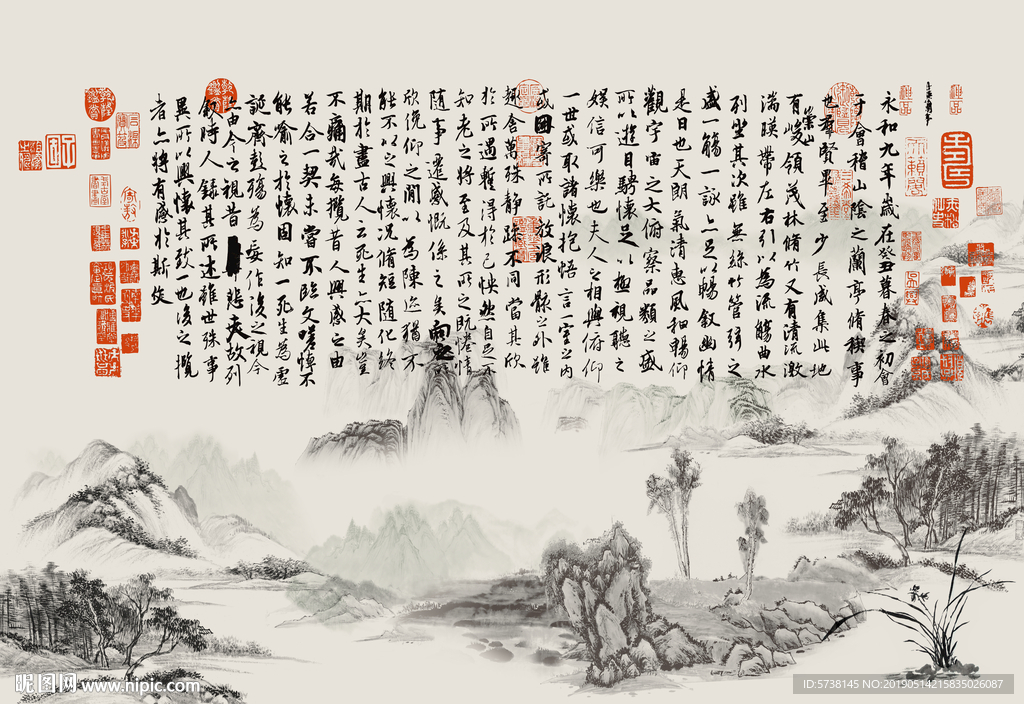 永和九年歲在癸丑暮春之初會
于會稽山陰之蘭亭脩稧事
也羣賢畢至少長咸集此地
有崇山峻領茂林脩竹又有清流激
湍暎帶左右引以為流觴曲水
列坐其次雖無絲竹管弦之
盛一觴一詠亦足以暢敘幽情
是日也天朗氣清惠風和暢仰
觀宇宙之大俯察品類之盛
所以遊目騁懷足以極視聽之
娛信可樂也夫人之相與俯仰
一世或取諸懷抱悟言一室之內
或因寄所託放浪形骸之外雖
趣舍萬殊靜躁不同當其欣
於所遇暫得於己怏然自足不
知老之將至及其所之既惓情
隨事遷感慨係之矣向之所
欣俛仰之間以為陳迹猶不
能不以之興懷況脩短隨化終
期於盡古人云死生亦大矣豈
不痛哉每攬昔人興感之由
若合一契未嘗不臨文嗟悼不
能喻之於懷固知一死生為虛
誕齊彭殤為妄作後之視今
亦由今之視昔悲夫故列
敘時人錄其所述雖世殊事
異所以興懷其致一也後之攬
者亦將有感於斯文
昵图网 www.nipic.com
ID:5738145 NO:20190514215835026087